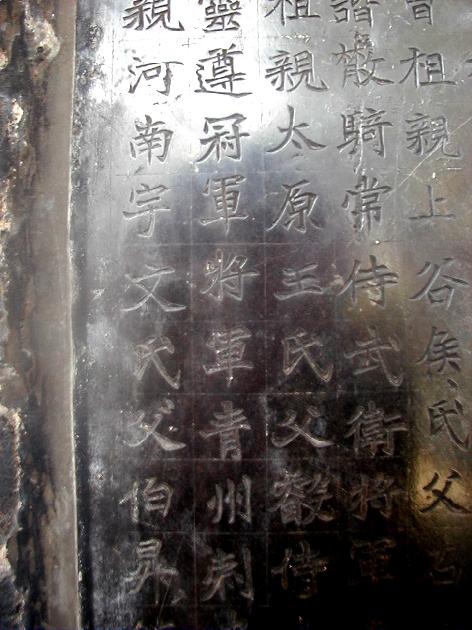 曾祖親上谷侯氏父
諧散騎常侍武衛將軍
祖親太原王氏父叡侍
靈遵冠軍將軍青州刺
親河南宇文氏父伯昇